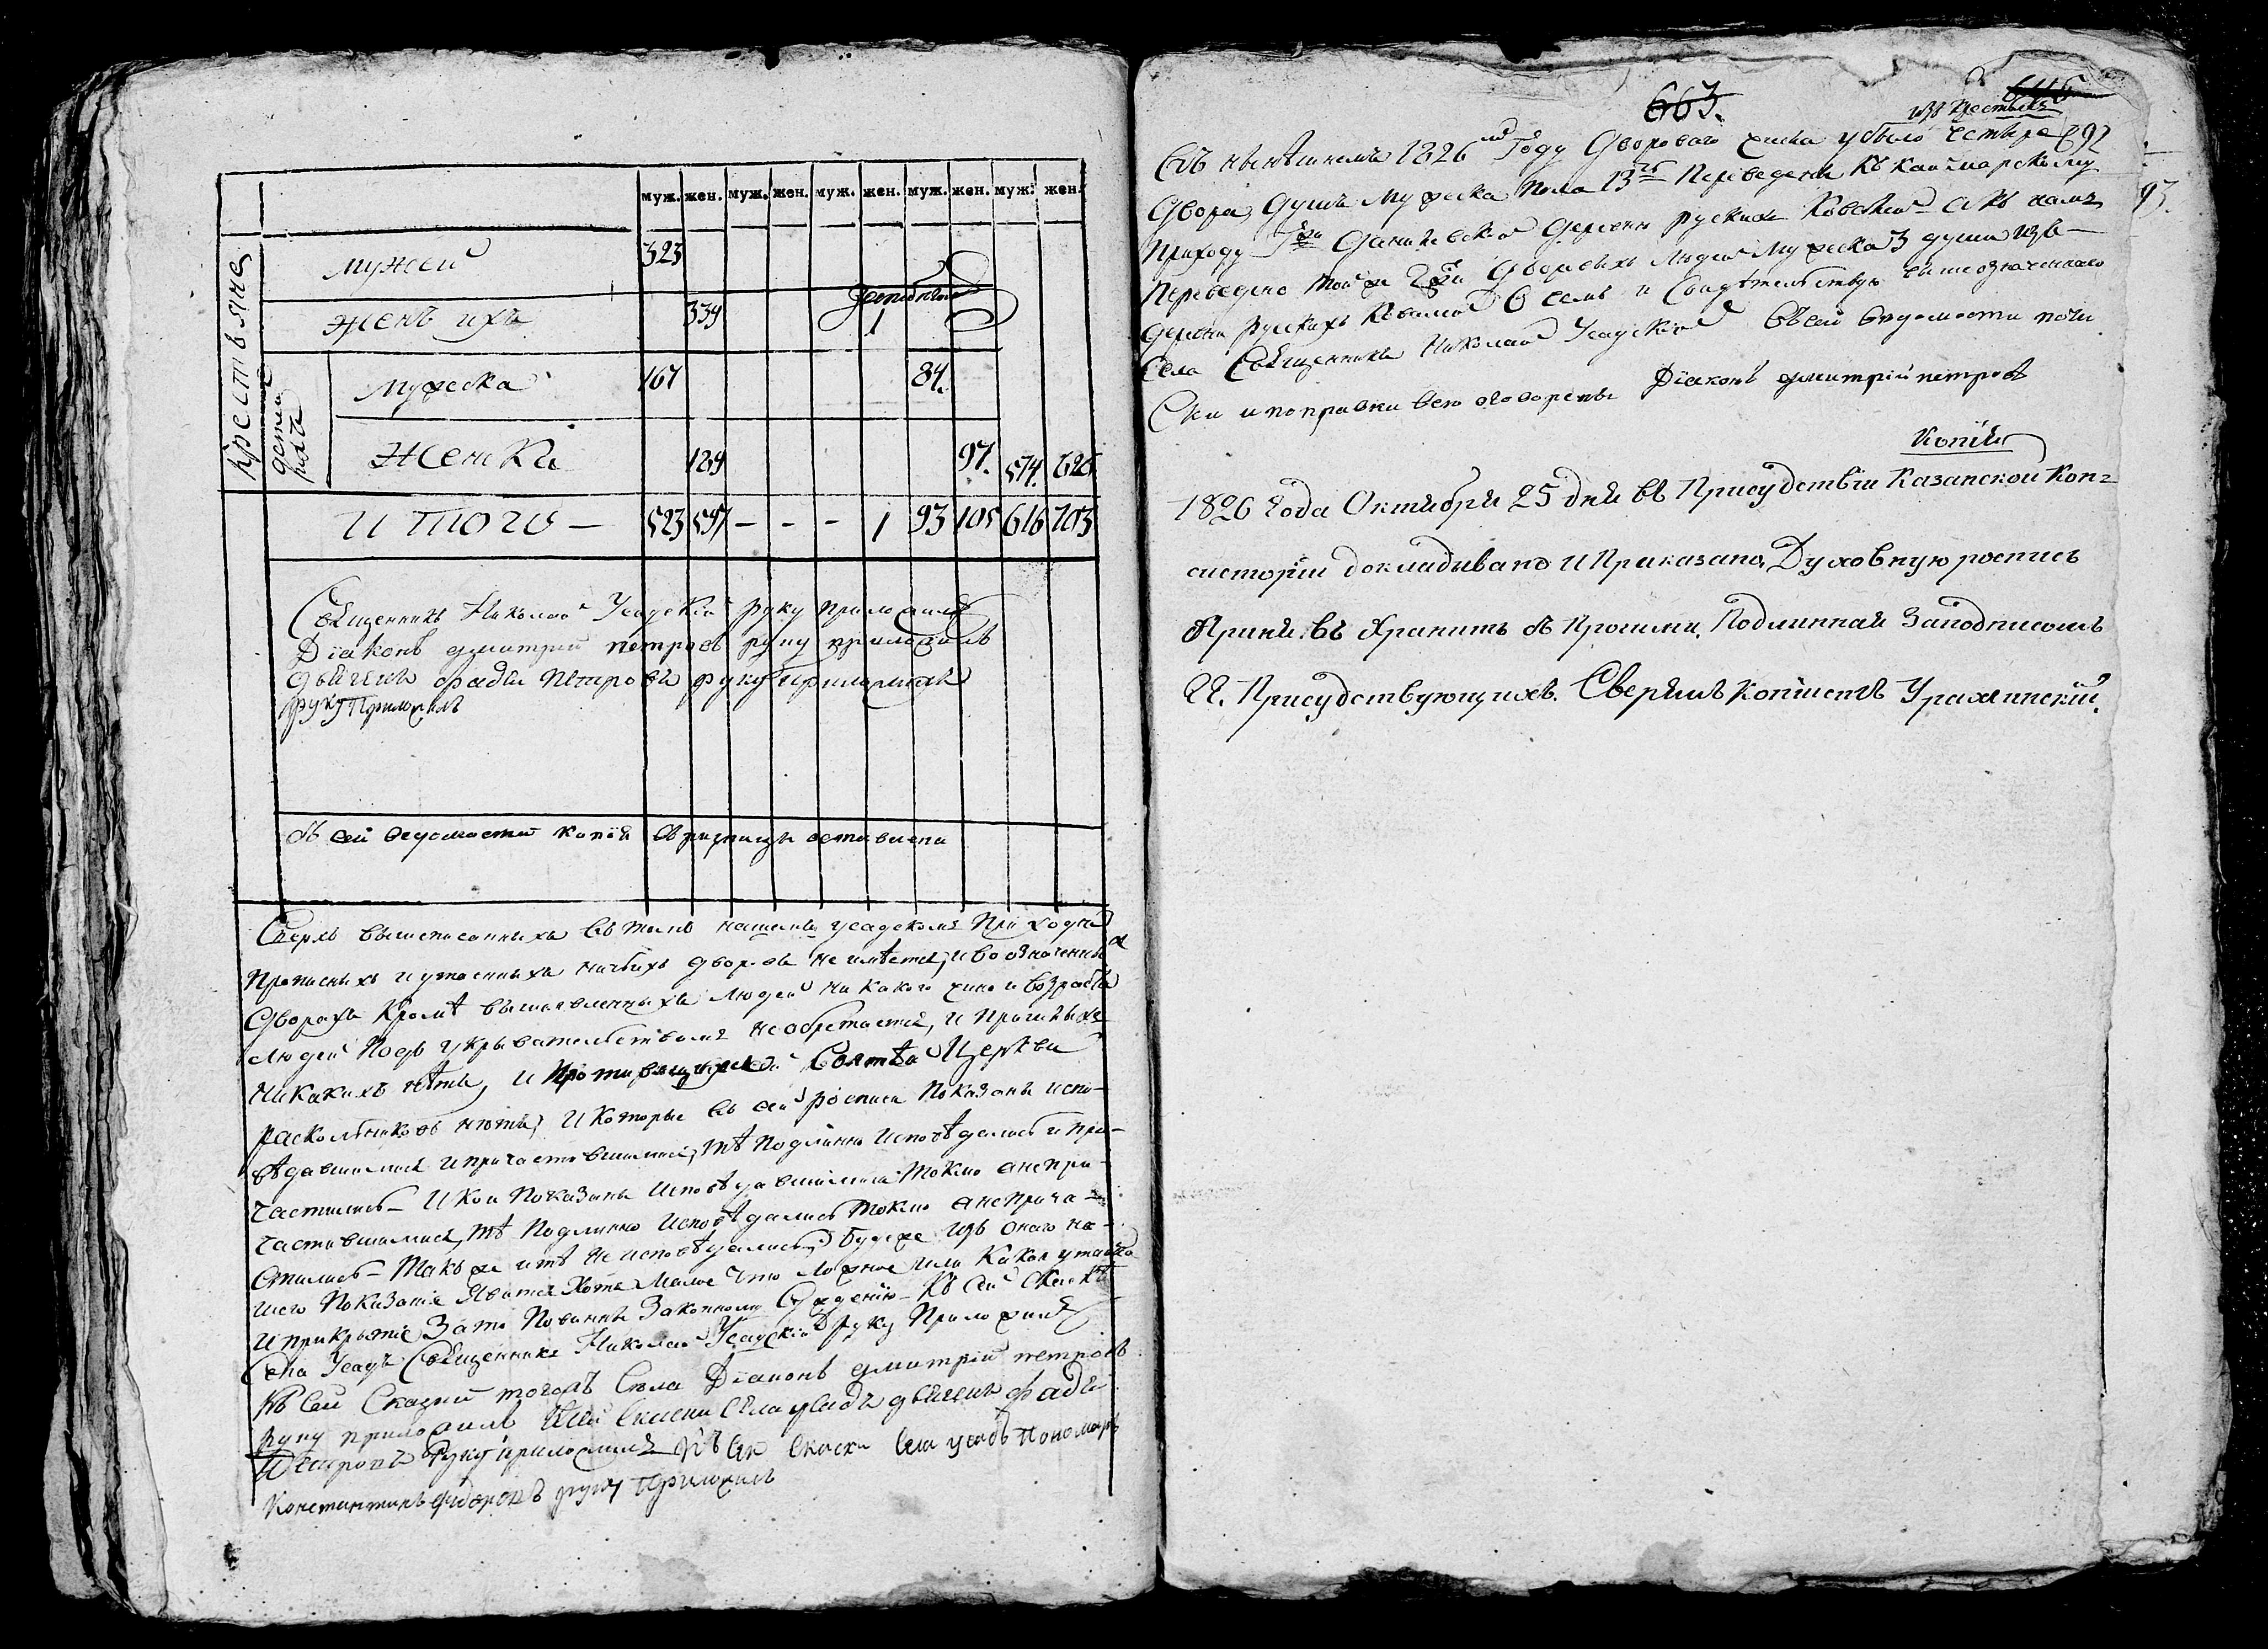 муж. жен. муж. жен. муж. жен. муж. жен. муж. жен.
крестьяне
мужей 323
женъ ихъ 339 1
детей ихъ
мужеска 167 84.
женска 189 97. 574. 626
итого — 523 597 — - - 1 93 105 616 703
Священникъ Николай Усадскій руку приложилъ
Діаконъ дмитрій петровъ руку приложилъ
дьячекъ фадей Петровъ руку приложилъ
руку Приложилъ
съ сей ведомости копія в ризницѣ оставлена
Сверхъ вышеписанныхъ въ томъ нашемъ усадскомъ Приходѣ
прописныхъ и утаенныхъ ничьихъ дворовъ не имѣется, и во означенныхъ
дворахъ кромѣ вышеявленныхъ людей никакого чина и возраста
людей подъ укрывательствомъ не обретается, и Прошлыхъ
никакихъ нѣтъ, и противящихся Святѣй Церкви
раскольниковъ нѣтъ, и которые въ сей росписи показаны испо-
вѣдавшимися и причастившимися, тѣ подлинно исповѣдались и при-
частились — И кои показаны исповѣдавшимися токмо а не при-
частившимися, тѣ подлинно исповѣдались токмо а не прича-
стились — Такъ же и тѣ не исповѣдались, Буде же изъ онаго на-
шего показанія явится хотя малое что ложное или какая утайка
и прикрытіе, за то повинны законному сужденію — Къ сей скаскѣ
Села Усадъ Священникъ Николай Усадскій руку Приложилъ
Къ сей Скаски тогожъ Села Діаконъ дмитрій петровъ
руку приложилъ Къ сей Скаски Села усадъ дьячекъ фадей
Петровъ руку приложилъ Къ сей скаски села усадъ Пономарь
Константинъ федоровъ руку Приложилъ
663.
292
93.
Въ нынѣшнемъ 1826мъ Году Двороваго числа убыло четыре
двора, душъ мужеска пола 13ть Переведены къ каймарскому
Приходу деревни русскихъ Ковалей — а къ намъ
Переведено той же дворовыхъ людей мужеска 3 души изъ —
деревни русскихъ Ковалей О семъ и Свидѣтельствую вышеозначеннаго
Села Священникъ Николай Усадскій Въ сей ведомости почи
Ски и поправки всю оговорены Діаконъ дмитрій петровъ
Копія
1826 года Октября 25 дня въ Присудствіи Казанской Кон=
систоріи докладывано и Приказано, Духовную роспись
Принявъ хранить съ Прочими, Подлинная Заподписомъ
гг. Присудствующихъ. Сверялъ Копіистъ Урахчинскій.